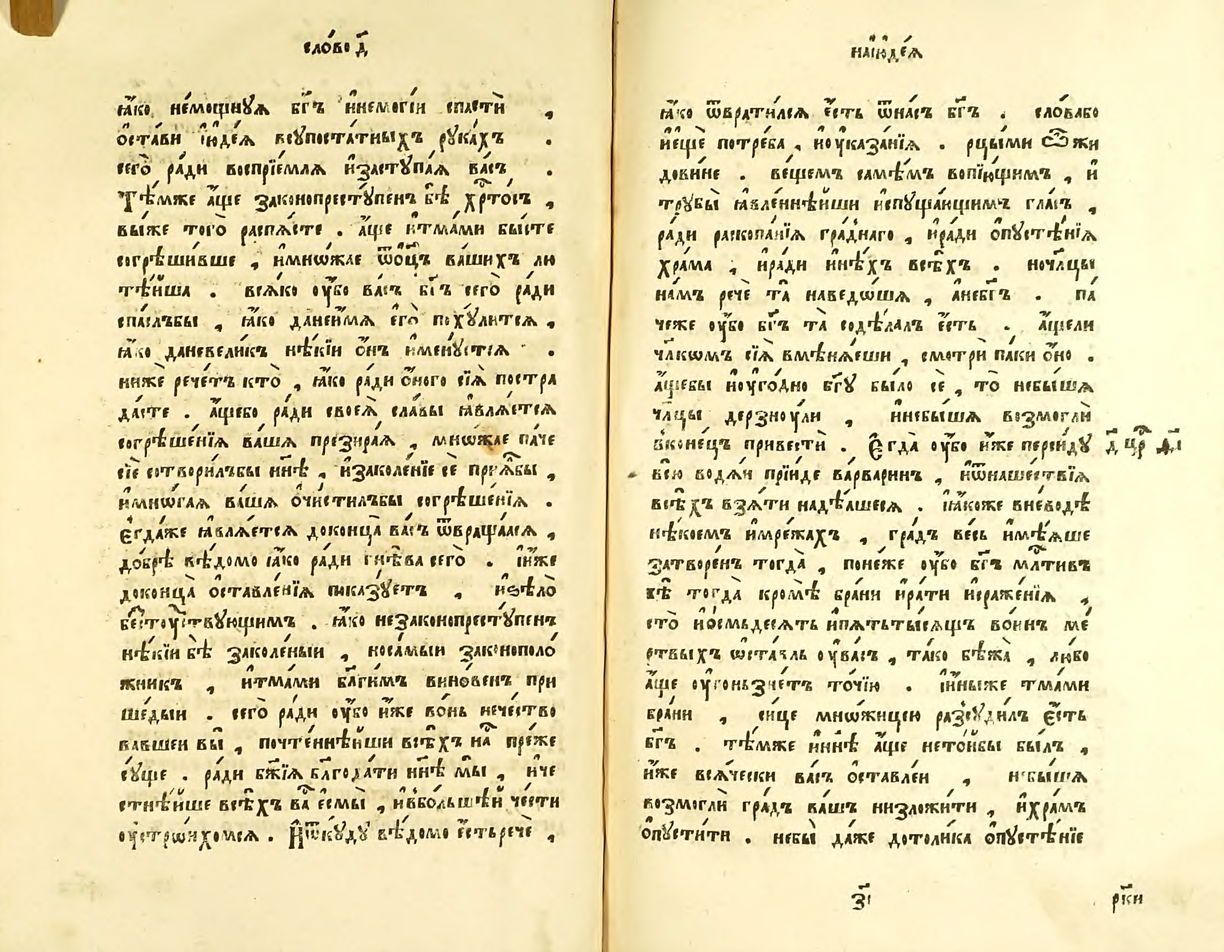 сло́во д҃
ꙗ҆́ко немощнꙋѧ бг҃ъ и҆немогі́и спастѝ ,
ѻ҆ста́ви і҆ꙋде́ѧ всꙋпоста́тныхъ рꙋка́хъ .
сегѡ̀ ра́ди воспрїе́млѧ и҆застꙋпа́ѧ ва́съ .
Тѣ́мже а҆́ще законопрестꙋ́пенъ бѣ̀ хрⷭ҇то́съ ,
вы́же того̀ распѧ́сте . а҆́ще и҆тма́ми бы́сте
согрѣши́вше , и҆мно́жае ѿѻ҆ц҃ъ ва́шихъ лю
тѣ́йша . всѧ́ко ᲂу҆́бо ва́съ бг҃ъ сего̀ ра́ди
спа́слъбы , ꙗ҆́ко данеи́мѧ є҆го̀ похꙋ́литсѧ ,
ꙗ҆́ко даневели́къ нѣ́кїи ѻ҆́нъ и҆менꙋ́етсѧ .
нижѐ рече́тъ кто̀ , ꙗ҆́ко ра́ди ѻ҆́ного сїѧ̀ постра
да́сте . а҆́щебо ра́ди своеѧ̀ сла́вы ꙗ҆влѧ́етсѧ
согрѣше́нїѧ ва́ша презира́ѧ , мно́жае па́че
сїѐ сотвори́лъбы нн҃ѣ , и҆заколе́нїе сѐ прїѧ́лбы ,
и҆мнѡ́гаѧ ва́ша ѻ҆чи́стилъбы согрѣше́нїѧ .
Є҆гда́же ꙗ҆влѧ́етсѧ доконца̀ ва́съ ѿвраща́ѧсѧ ,
до́брѣ вѣ́домо ꙗ҆́ко ра́ди гнѣ́ва сего̀ . и҆́иже
доконца̀ ѻ҆ставле́нїѧ показꙋ́етъ , и҆ѕѣло̀
бестꙋ́дствꙋющимъ . ꙗ҆́ко незаконопрестꙋ́пенъ
нѣ́кїи бѣ̀ заколе́ныи , носа́мыи законополо
жникъ , и҆тма́ми благи́мъ вино́венъ при
ше́дыи . сего̀ ра́ди ᲂу҆́бо и҆́же во́нь нечество
вавшеи вы̀ , почте́ннѣйши всѣ́хъ на́съ пре́же
сꙋ́ще . ра́ди бж҃їѧ блг҃ода́ти нн҃ѣ мы̀ , и҆че
стнѣ́йше всѣ́хъ ва́съ є҆смы̀ , и҆вбо́льшеи че́сти
ᲂу҆стро́ихомсѧ . И҆ѿкꙋ́дꙋ вѣ́домо є҆́сть речѐ ,
наі҆ꙋде́ѧ
ꙗ҆́ко ѿврати́лсѧ є҆́сть ѿна́съ бг҃ъ . сло́вабо
и҆ещѐ потре́ба , и҆оуказа́нїѧ . рцы́ми ѽжи
до́вине . ве́щемъ самѣ́мъ вопїю́щимъ , и҆
трꙋбы̀ ꙗ҆вле́ннѣйши и҆спꙋща́ющимъ гла́съ ,
ра́ди раскопа́нїѧ гра́днаго , и҆ра́ди ѻ҆пꙋстѣ́нїѧ
хра́ма , и҆ра́ди и҆нѣ́хъ всѣ́хъ . ночл҃цы
на́мъ речѐ та̀ наведо́ша , а҆небг҃ъ . па
че́же ᲂу҆́бо бг҃ъ та̀ содѣ́лалъ є҆́сть . а҆́щели
чл҃кѡмъ сїѧ̀ вмѣнѧ́еши , смотрѝ па́ки ѻ҆́но .
а҆́щебы ноуго́дно бг҃ꙋ бы́ло сѐ , то̀ небы́ша
чл҃цы дерзнꙋ́ли , и҆небы́ша возмоглѝ
вконе́цъ привестѝ . Є҆гда̀ ᲂу҆́бо и҆́же перси́дꙋ
всю̀ водѧ́и прїи́де варвари́нъ , и҆ѿнаше́ствїѧ
всѣ́хъ взѧ́ти надѣ́ашесѧ . и҆ꙗ҆́коже вневодѣ̀
нѣ́коемъ и҆мре́жахъ , гра́дъ ве́сь и҆мѣ́ѧше
затворе́нъ тогда̀ , поне́же ᲂу҆́бо бг҃ъ млⷭ҇тивъ
бѣ̀ тогда̀ кромѣ̀ бра́ни и҆ра́ти и҆сраже́нїѧ ,
сто̀ и҆о́смьдесѧтъ и҆пѧ́тьты́сѧщъ во́инъ ме
ртвыхъ ѡ҆ста́вль ᲂу҆ва́съ , та́ко бѣжа̀ , любо
а҆́ще ᲂу҆гоньзне́тъ то́чїю . и҆и҆ны́же тма́ми
бра́ни , си́це мно́жицею разсꙋди́лъ є҆́сть
бг҃ъ . тѣ́мже и҆нн҃ѣ а҆́ще нето́йбы бы́лъ ,
и҆́же всѧ́чески ва́съ ѻ҆ста́влеи , небы́ша
возмоглѝ гра́дъ ва́шъ низложи́ти , и҆хра́мъ
ѻ҆пꙋсти́ти . небы̀ да́же дото́лика ѻ҆пꙋстѣ́нїе
д҃ цр҃ гл҃і
з҃і
рки